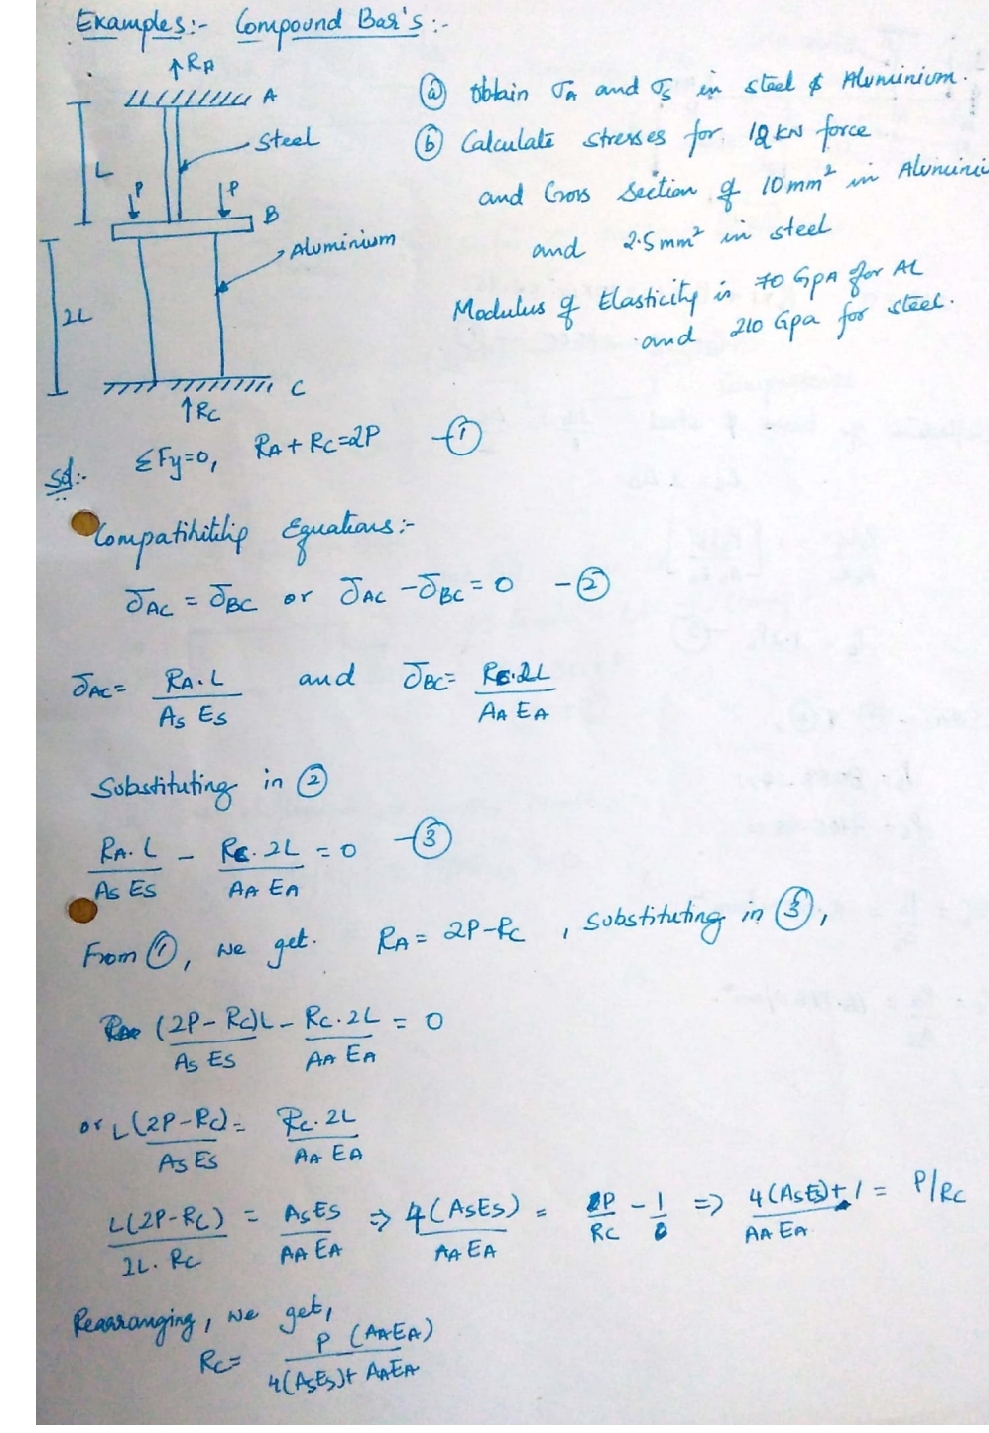 Examples:- Compound Bar's:-
↑RA
A
Steel
L
P
P
B
Aluminium
2L
C
↑RC
(a) Obtain σA and σS in steel & Aluminium.
(b) Calculate stresses for 12 KN force
and Cross section of 10mm² in Alumini
and 2.5mm² in steel
Modulus of Elasticity is 70 GPA for AL
and 210 Gpa for steel.
Sol:- ΣFy=0, RA + RC=2P -(1)
Compatibility Equations:-
δAC = δBC or δAC - δBC = 0 -(2)
δAC= RA.L / AS ES and δBC= RC.2L / AA EA
Substituting in (2)
RA.L / AS ES - RC.2L / AA EA = 0 -(3)
From (1), we get. RA = 2P-RC , substituting in (3),
(2P-RC)L / AS ES - RC.2L / AA EA = 0
or L(2P-RC) / AS ES = RC.2L / AA EA
L(2P-RC) / 2L.RC = ASES / AA EA ⇒ 4(ASES) / AA EA = 2P / RC - 1 ⇒ 4(ASES) / AA EA + 1 = P/RC
Rearranging, we get,
RC= P (AAEA) / 4(ASES)+ AAEA